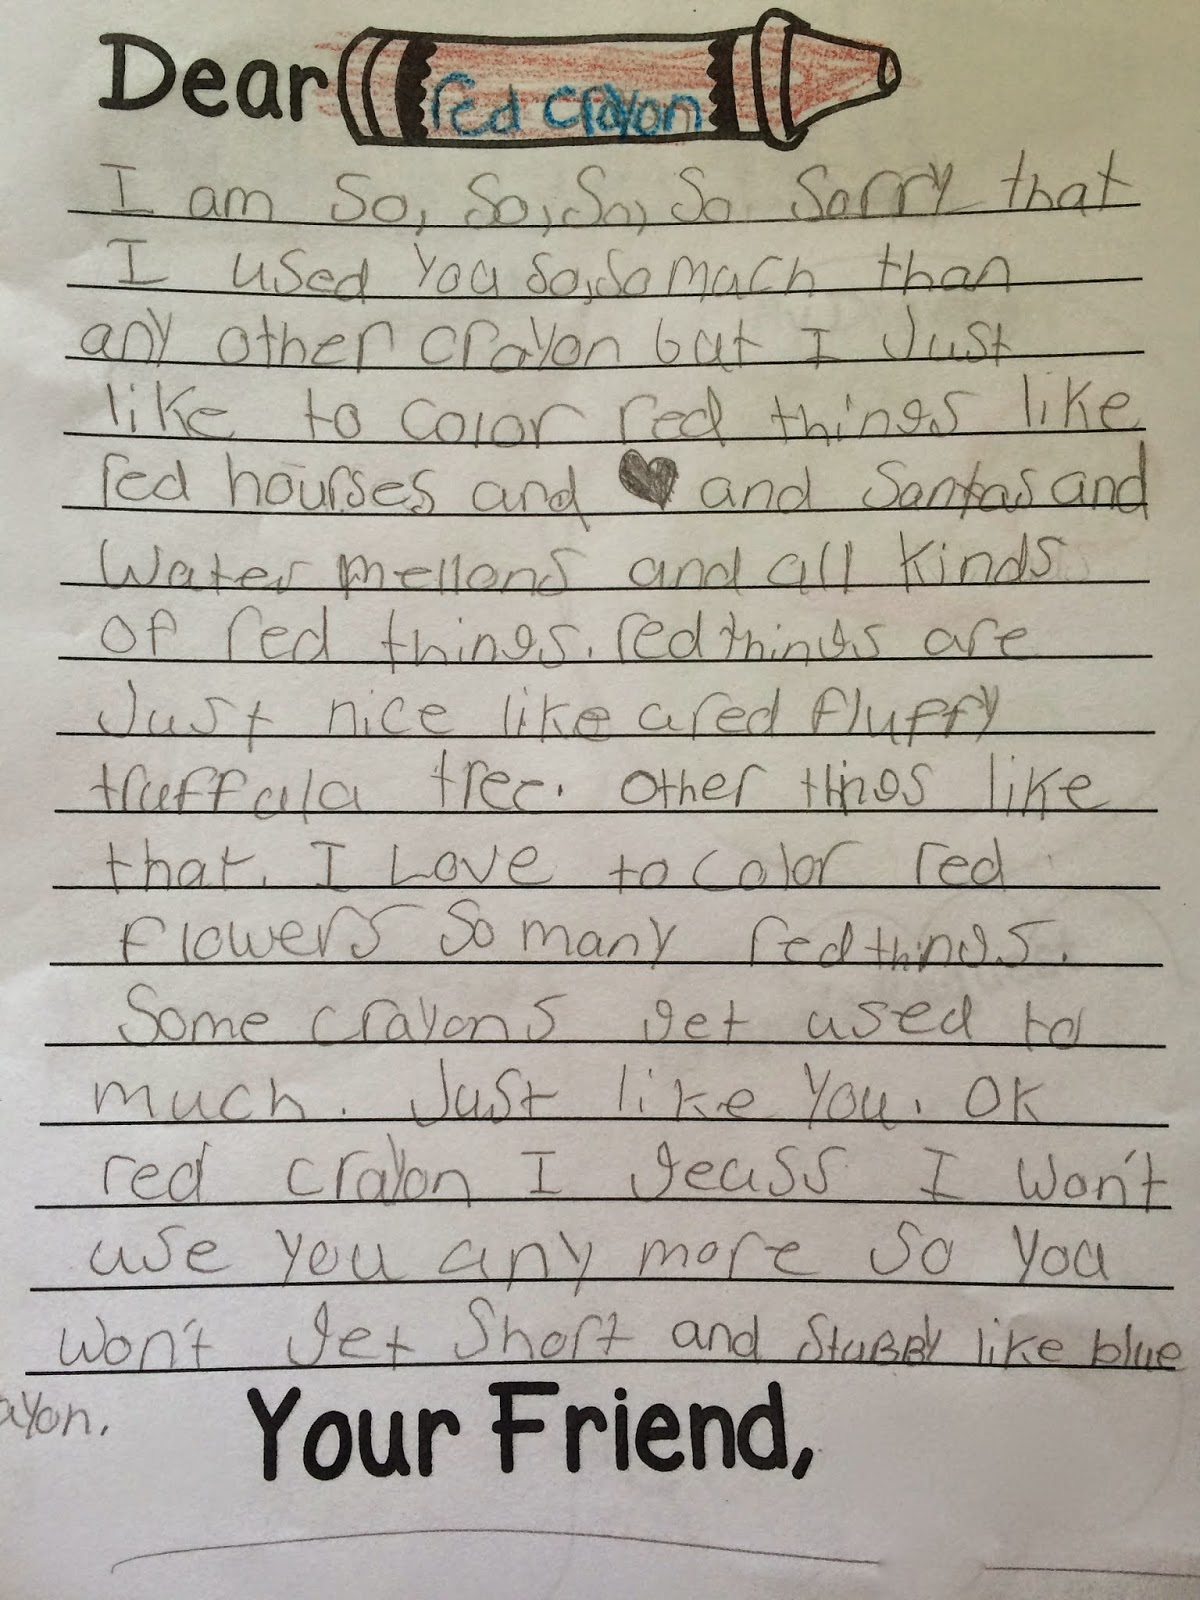 Dear red crayon
I am so, so, so, so sorry that
I used you so, so mach than
any other crayon but I Just
like to color red things like
red hourses and ♥ and Santas and
Water mellons and all kinds
of red things. red things are
Just nice like a red fluffy
truffala tree. Other things like
that. I Love to color red
flowers so many red things.
Some crayons get used to
much. Just like you. OK
red crayon I geuss I won't
use you any more so you
won't get short and stuBBy like blue
ayon.
Your Friend,